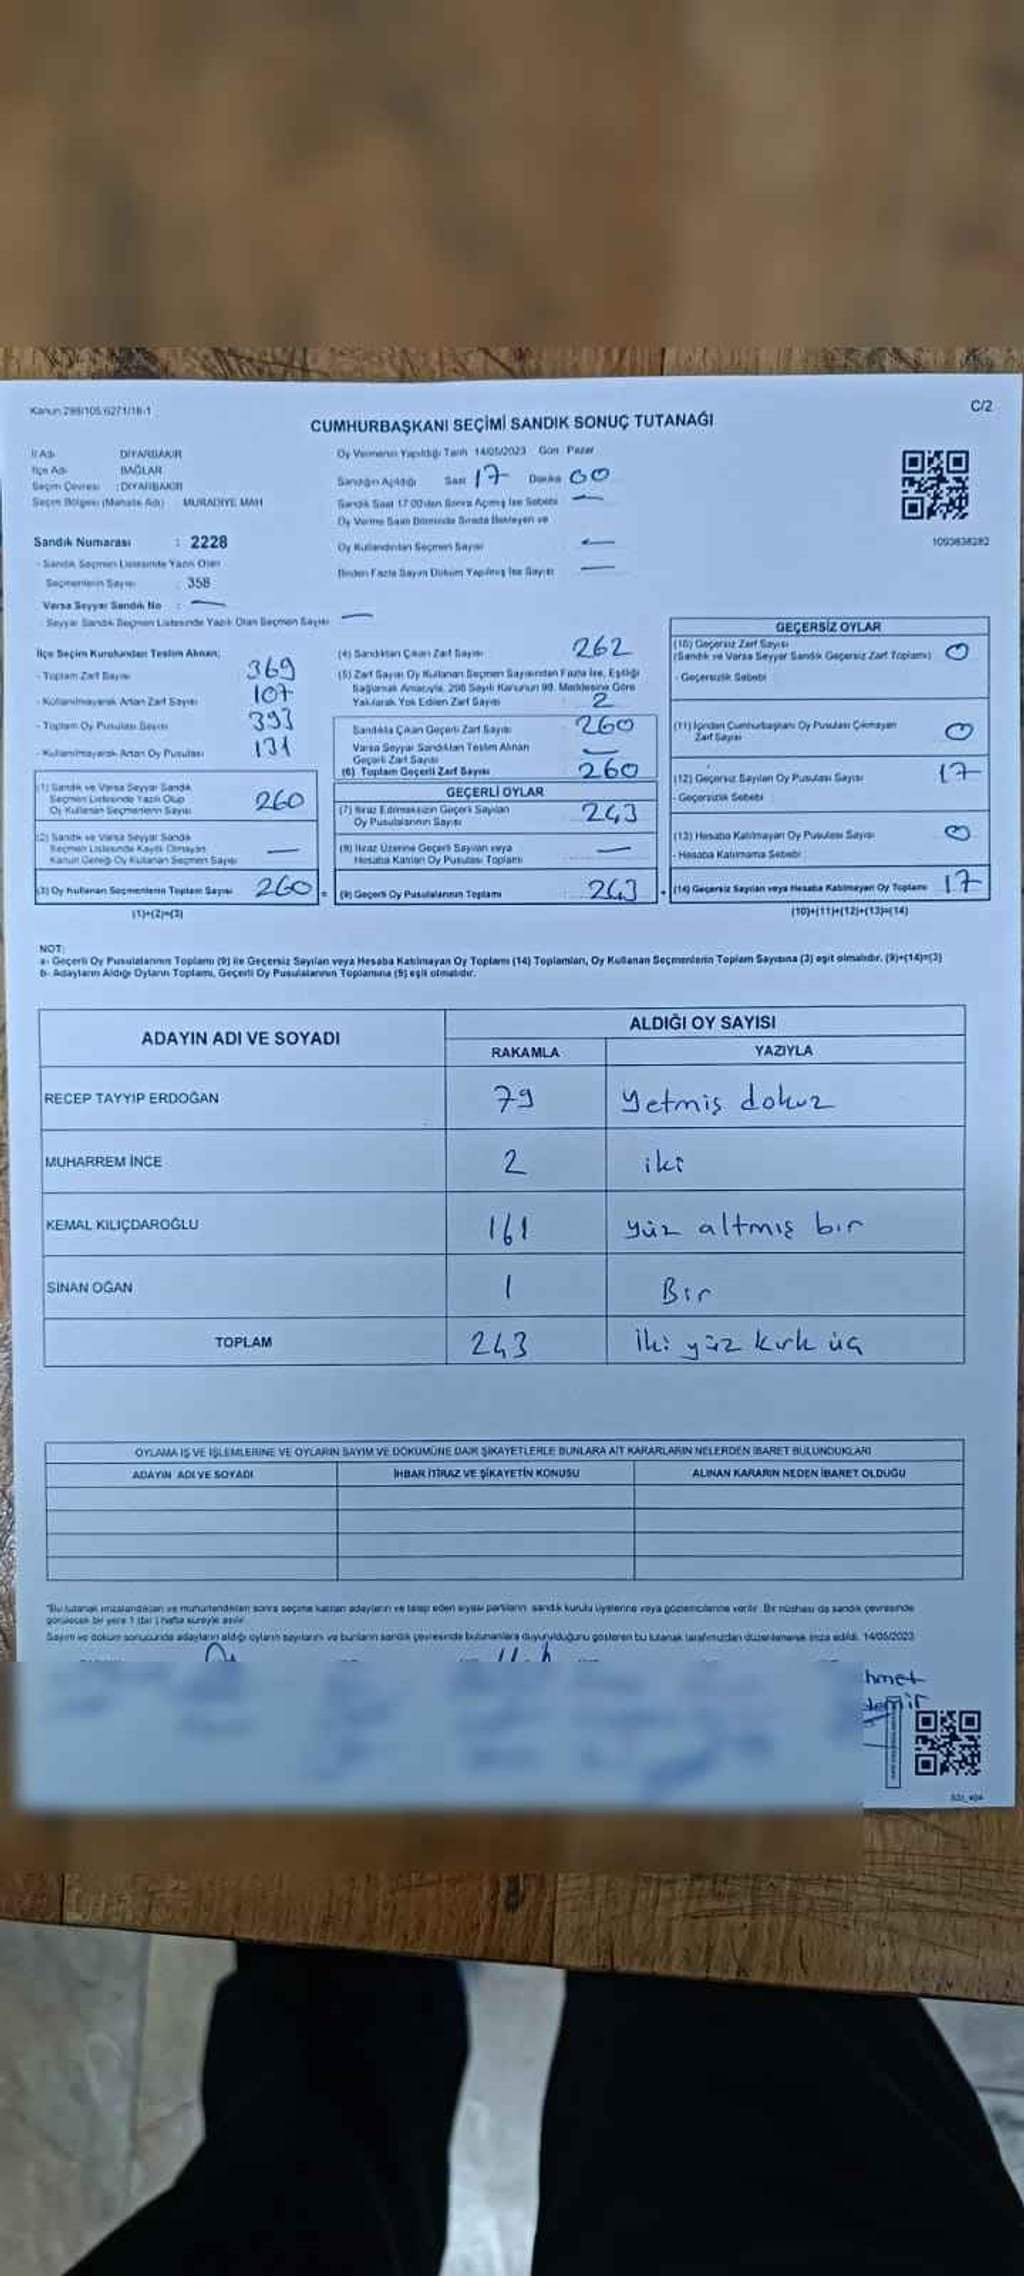 Kanun 298/105 6271/18-1
C/2
CUMHURBAŞKANI SEÇİMİ SANDIK SONUÇ TUTANAĞI
İl Adı DİYARBAKIR
İlçe Adı BAĞLAR
Seçim Çevresi : DİYARBAKIR
Seçim Bölgesi (Mahalle Adı) MURADİYE MAH
Sandık Numarası : 2228
- Sandık Seçmen Listesinde Yazılı Olan
Seçmenlerin Sayısı : 358
Varsa Seyyar Sandık No : —
Seyyar Sandık Seçmen Listesinde Yazılı Olan Seçmen Sayısı —
Oy Vermenin Yapıldığı Tarih 14/05/2023 Gün Pazar
Sandığın Açıldığı Saat 17 Dakika 00
Sandık Saat 17:00'den Sonra Açılmış İse Sebebi —
Oy Verme Saati Bitiminde Sırada Bekleyen ve
Oy Kullandırılan Seçmen Sayısı —
Birden Fazla Sayım Döküm Yapılmış İse Sayısı —
1093838282
İlçe Seçim Kurulundan Teslim Alınan;
- Toplam Zarf Sayısı 369
- Kullanılmayarak Artan Zarf Sayısı 107
- Toplam Oy Pusulası Sayısı 393
- Kullanılmayarak Artan Oy Pusulası 131
(1) Sandık ve Varsa Seyyar Sandık
Seçmen Listesinde Yazılı Olup
Oy Kullanan Seçmenlerin Sayısı 260
(2) Sandık ve Varsa Seyyar Sandık
Seçmen Listesinde Kayıtlı Olmayan
Kanun Gereği Oy Kullanan Seçmen Sayısı —
(3) Oy Kullanan Seçmenlerin Toplam Sayısı 260 =
(1)+(2)=(3)
(4) Sandıktan Çıkan Zarf Sayısı 262
(5) Zarf Sayısı Oy Kullanan Seçmen Sayısından Fazla İse, Eşitliği
Sağlamak Amacıyla, 298 Sayılı Kanunun 98. Maddesine Göre
Yakılarak Yok Edilen Zarf Sayısı 2
Sandıkta Çıkan Geçerli Zarf Sayısı 260
Varsa Seyyar Sandıktan Teslim Alınan
Geçerli Zarf Sayısı —
(6) Toplam Geçerli Zarf Sayısı 260
GEÇERLİ OYLAR
(7) İtiraz Edilmeksizin Geçerli Sayılan
Oy Pusulalarının Sayısı 243
(8) İtiraz Üzerine Geçerli Sayılan veya
Hesaba Katılan Oy Pusulası Toplamı —
(9) Geçerli Oy Pusulalarının Toplamı 243 +
GEÇERSİZ OYLAR
(10) Geçersiz Zarf Sayısı
(Sandık ve Varsa Seyyar Sandık Geçersiz Zarf Toplamı) 0
- Geçersizlik Sebebi
(11) İçinden Cumhurbaşkanı Oy Pusulası Çıkmayan
Zarf Sayısı 0
(12) Geçersiz Sayılan Oy Pusulası Sayısı 17
- Geçersizlik Sebebi
(13) Hesaba Katılmayan Oy Pusulası Sayısı 0
- Hesaba Katılmama Sebebi
(14) Geçersiz Sayılan veya Hesaba Katılmayan Oy Toplamı 17
(10)+(11)+(12)+(13)=(14)
NOT:
a- Geçerli Oy Pusulalarının Toplamı (9) ile Geçersiz Sayılan veya Hesaba Katılmayan Oy Toplamı (14) Toplamları, Oy Kullanan Seçmenlerin Toplam Sayısına (3) eşit olmalıdır. (9)+(14)=(3)
b- Adayların Aldığı Oyların Toplamı, Geçerli Oy Pusulalarının Toplamına (9) eşit olmalıdır.
ADAYIN ADI VE SOYADI
ALDIĞI OY SAYISI
RAKAMLA YAZIYLA
RECEP TAYYIP ERDOĞAN 79 Yetmiş dokuz
MUHARREM İNCE 2 iki
KEMAL KILIÇDAROĞLU 161 yüz altmış bir
SİNAN OĞAN 1 Bir
TOPLAM 243 İki yüz kırk üç
OYLAMA İŞ VE İŞLEMLERİNE VE OYLARIN SAYIM VE DÖKÜMÜNE DAİR ŞİKAYETLERLE BUNLARA AİT KARARLARIN NELERDEN İBARET BULUNDUKLARI
ADAYIN ADI VE SOYADI İHBAR İTİRAZ VE ŞİKAYETİN KONUSU ALINAN KARARIN NEDEN İBARET OLDUĞU
*Bu tutanak imzalandıktan ve mühürlendikten sonra seçime katılan adayların ve talep eden siyasi partilerin sandık kurulu üyelerine veya gözlemcilerine verilir. Bir nüshası da sandık çevresinde
görülecek bir yere 1 (bir) hafta süreyle asılır
Sayım ve döküm sonucunda adayların aldığı oyların sayılarını ve bunların sandık çevresinde bulunanlara duyurulduğunu gösteren bu tutanak tarafımızdan düzenlenerek imza edildi. 14/05/2023
hmet
demir